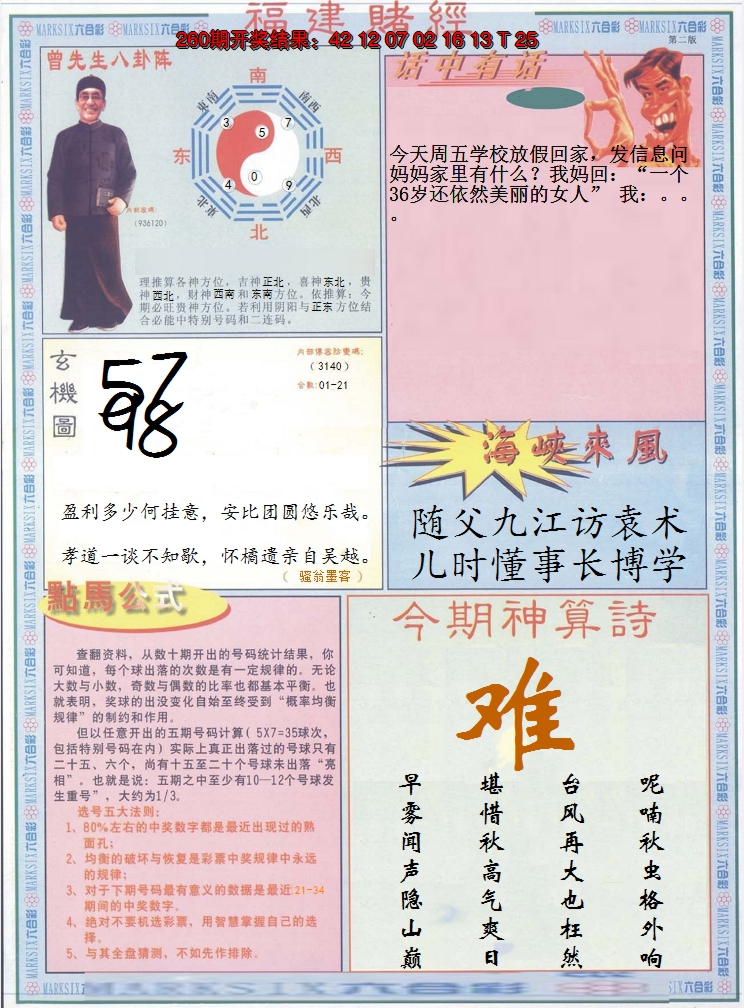 福建賭經
260期开奖结果：42 12 07 02 16 13 T 25
MARKSIX六合彩 MARKSIX六合彩 MARKSIX六合彩 MARKSIX六合彩 MARKSIX六合彩
第二版
曾先生八卦阵
南
東南
南西
3
5
7
东
西
4
0
9
東北
北西
北
内部密碼:
(936120)
理推算各神方位，吉神正北，喜神东北，贵
神西北，财神西南和东南方位。依推算：今
期必旺贵神方位。若利用阴阳与正东方位结
合必能中特别号码和二连码。
话中有话
今天周五学校放假回家，发信息问
妈妈家里有什么？我妈回：“一个
36岁还依然美丽的女人” 我：。。
。
玄機圖
57
98
内部傳密防愛碼:
(3140)
合數:01-21
盈利多少何挂意，安比团圆悠乐哉。
孝道一谈不知歇，怀橘遗亲自吴越。
（ 骚翁墨客 ）
海峽來風
随父九江访袁术
儿时懂事长博学
點馬公式
查翻资料，从数十期开出的号码统计结果，你
可知道，每个球出落的次数是有一定规律的。无论
大数与小数，奇数与偶数的比率也都基本平衡。也
就表明，奖球的出没变化自始至终受到“概率均衡
规律”的制约和作用。
但以任意开出的五期号码计算( 5X7=35球次，
包括特别号码在内) 实际上真正出落过的号球只有
二十五、六个，尚有十五至二十个号球未出落“亮
相”。也就是说：五期之中至少有10—12个号球发
生重号”，大约为1/3。
选号五大法则：
1、80%左右的中奖数字都是最近出现过的熟
面孔；
2、均衡的破坏与恢复是彩票中奖规律中永远
的规律；
3、对于下期号码最有意义的数据是最近21-34
期间的中奖数字。
4、绝对不要机选彩票，用智慧掌握自己的选
择。
5、与其全盘猜测，不如先作排除。
今期神算詩
难
早雾闻声隐山巅
堪惜秋高气爽日
台风再大也枉然
呢喃秋虫格外响
MARKSIX六合彩